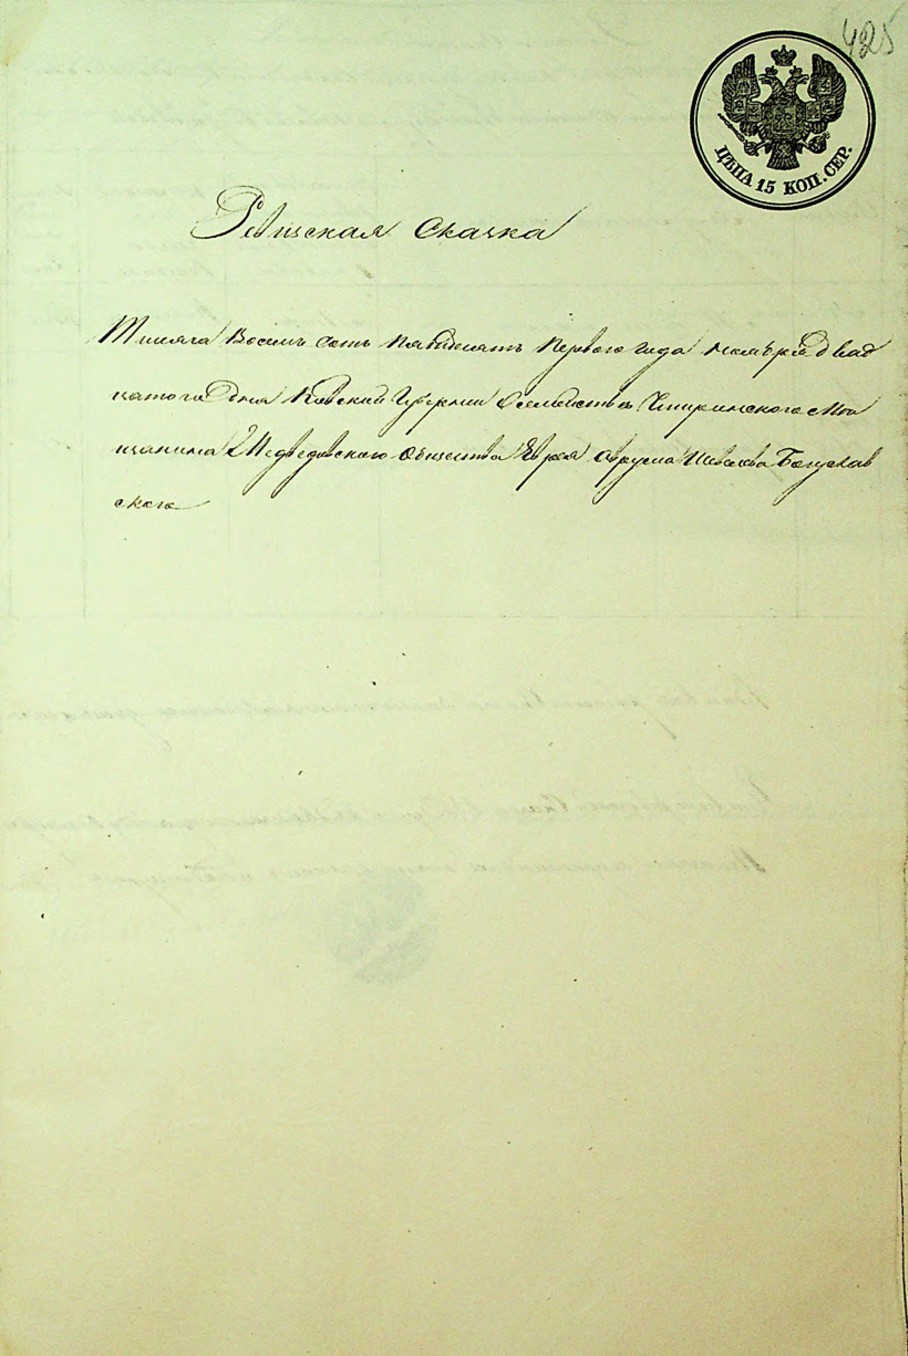 425
ЦѢНА 15 КОП. СЕР.
Ревизская Сказка
Тысяча Восемь сотъ пятьдесятъ Первого Года Ноября двад
цатого дня Киевской Губернии О семействе Чигиринского Мѣ
щанина Медведовского Общества Еврея Аврума Богуслав
ского